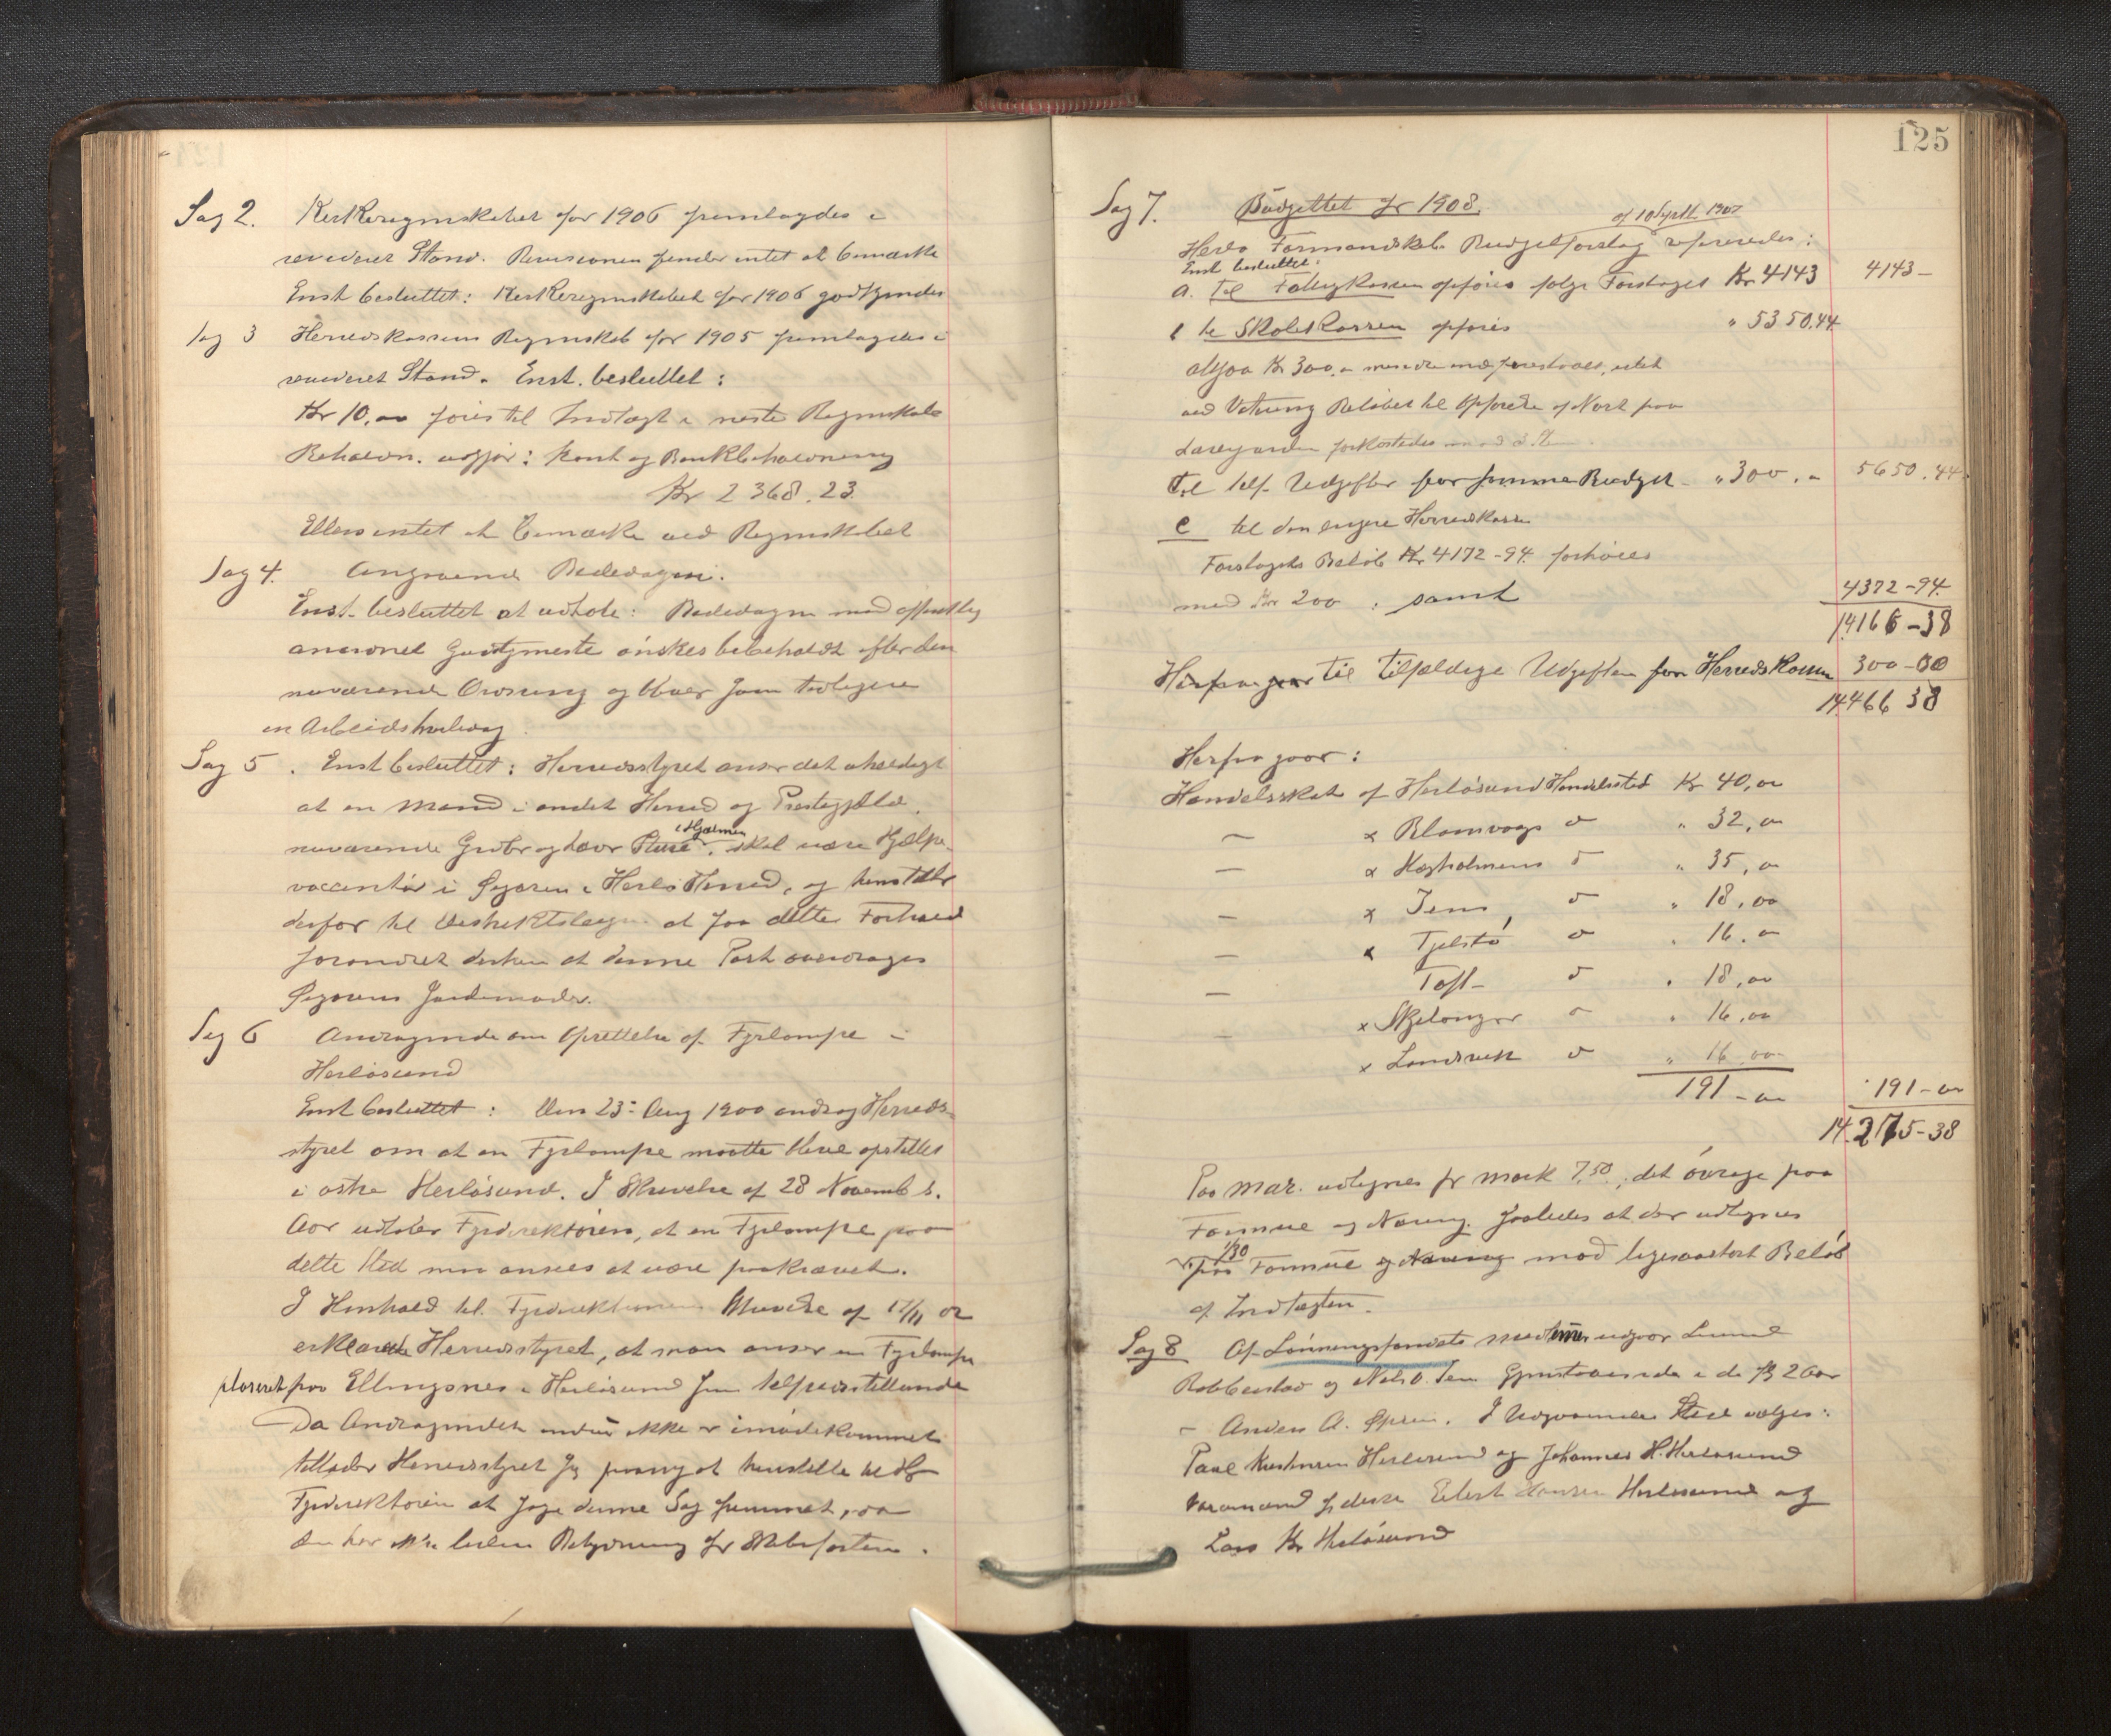 Sag 2. Kirkeregnskabet for 1906 fremlagdes i
revideret Stand. Revisionen finder intet at bemærke
Enst besluttet: Kirkeregnskabet for 1906 godkjendes
Sag 3 Herredskassens Regnskab for 1905 fremlagdes i
revideret Stand. Enst. besluttet:
Kr 10,00 føres til Indtægt i neste Regnskab
Beholdn. udgjør: kont og Bankbeholdning
Kr 2368.23.
Ellers intet at bemærke ved Regnskabet
Sag 4. Angaaende Bededagen.
Enst. besluttet at udtale: Bededagen med offentlig
anordnet Gudstjeneste ønskes bibeholdt efter den
nuværende Ordning og bliver som tidligere
en Arbeidshviledag.
Sag 5. Enst besluttet: Herredsstyret anser det uheldigt
at en Mand i andet Herred og Prestegjeld,
nuværende Grubr og Læver i Hjelmen skal være Hjelpe-
vaccinatør i Øygaren i Herlø Herred, og henstiller
derfor til Distriktslægen at faa dette Forhold
forandret derhen at denne Post overdrages
Øygarens Jordemoder.
Sag 6 Andragende om Oprettelse af Fyrlampe i
Herløsund
Enst besluttet: Den 23de Aug 1900 androg Herreds-
styret om at en Fyrlampe maatte blive opstillet
i østre Herløsund. I Skrivelse af 28 Novemb s.
Aar udtaler Fyrdirektøren, at en Fyrlampe paa
dette Sted maa ansees at være paakrævet.
I Henhold til Fyrdirektørens Skrivelse af 17/11 02
erklærede Herredsstyret, at man anser en Fyrlampe
plaseret paa Ellingsnes i Herløsund som tilfredsstillende
Da Andragendet endnu ikke er imødekommet
tillader Herredsstyret sig paany at henstille til Hr
Fyrdirektøren at søge denne Sag fremmet, da
den har ikke liden Betydning for Skibsfarten.
125
Sag 7. Budgettet for 1908.
af 10 Septb 1907
Herdø Formandskabs Budgetforslag refereredes:
Enst besluttet:
a. Til Fattigkassen opføres ifølge Forslaget Kr 4143 4143 –
b til Skolekassen opføres " 5350.44
altsaa Kr 300,00 mindre end foreslaaet, idet
Til tilf. Udgifter for samme Budget – " 300.00 5650.44
c til den engere Herredskasse
Forslagets Beløb Kr 4172-94 forhøies
med Kr 200 : samt 4372-94
14166-38
Herfra gaar til tilfældige Udgifter for Herredskassen 300-00
14466 38
Herfra gaar:
Handelsskat af Herløsund Handelssted Kr 40,00
— x Blomvaag do " 32,00
— x Hagholmens do " 35,00
— x Sems do " 18,00
— x Tjelstø do " 16.00
— Toft do " 18,00
— x Skjelanger do " 16,00
x Landsvik do " 16 00
191-00 191-00
14275-38
Paa Matr. udlignes pr Mark 7,50, det øvrige paa
Formue og Næring. Saaledes at der udlignes
1/30
paa Formue og Næring mod ligesaastort Beløb
af Indtægten.
Sag 8 Af Ligningsfondets medlemmer udgaar
Rabbersvik og Nels O. Sem Gjenstaaende i de første 2 Aar
– Anders A. I Udgaaendes Sted vælges:
Paul Kristensen Herløsund og Johannes H. Herløsund
Varamænd for disse Eilert Hansen Herløsund og
Lars Kr Herløsund